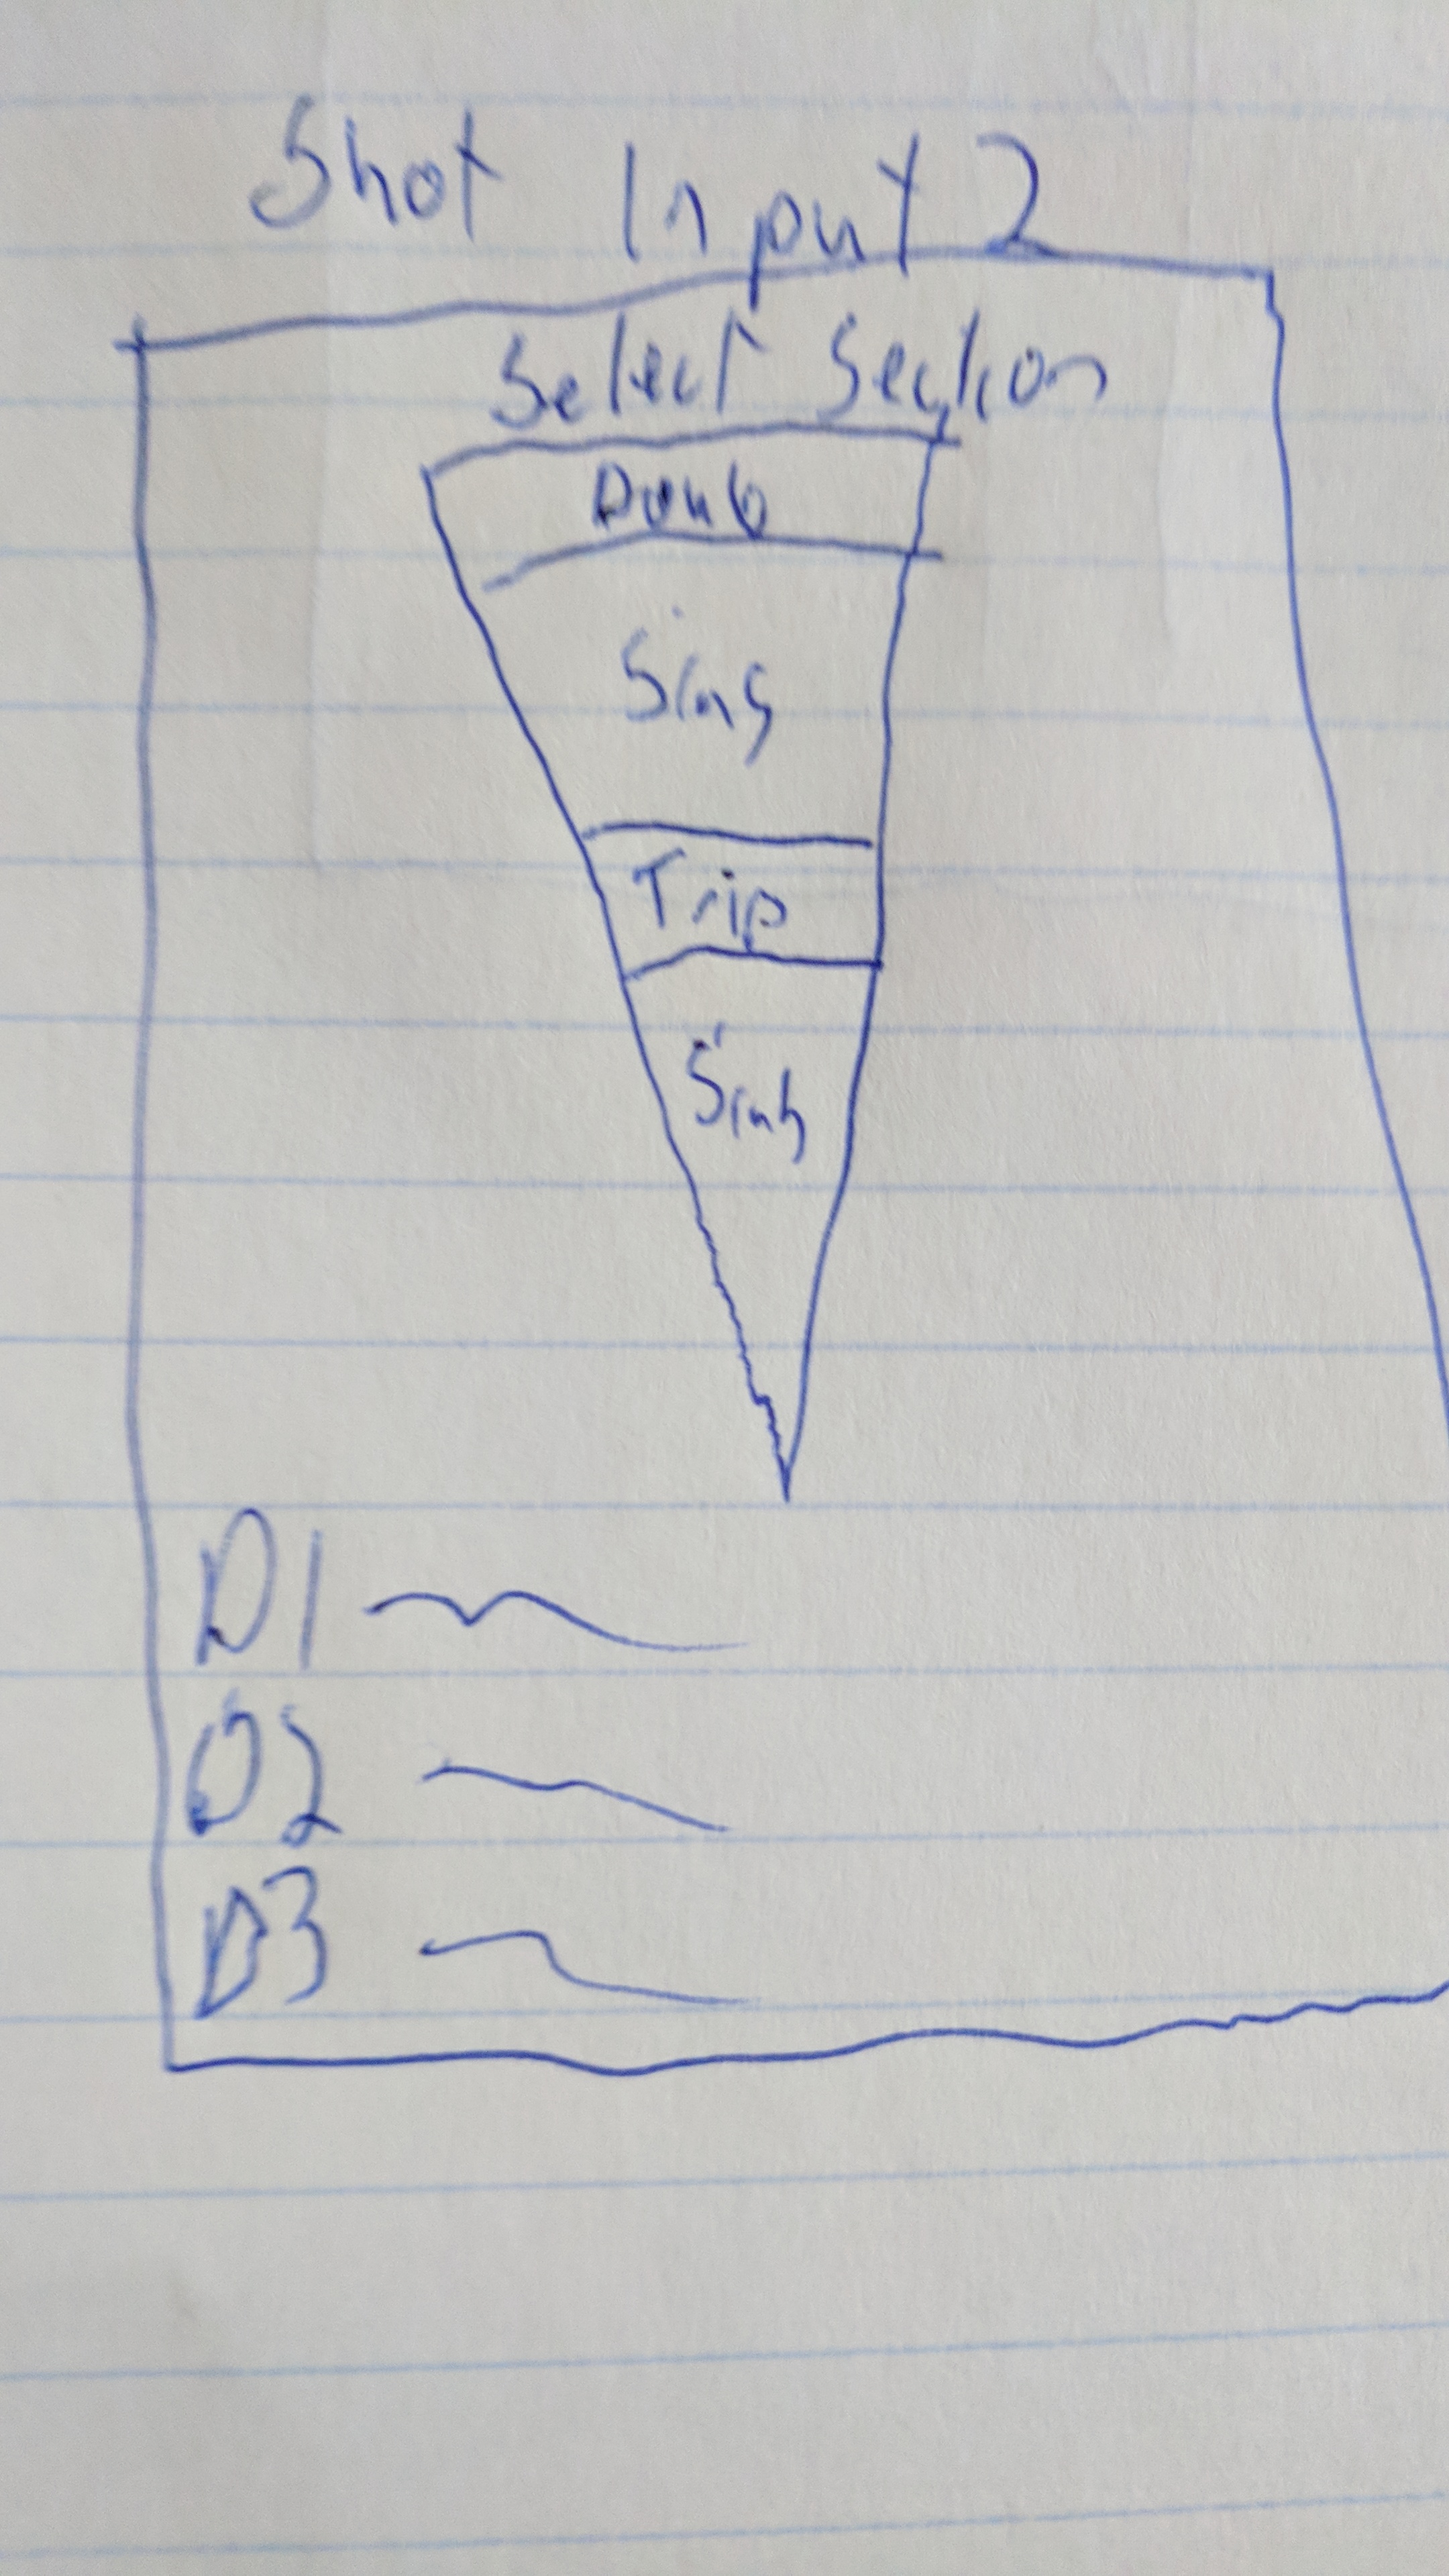 Shot Input 2
Select Section
Doub
Sing
Trip
Sing
D1
D2
D3